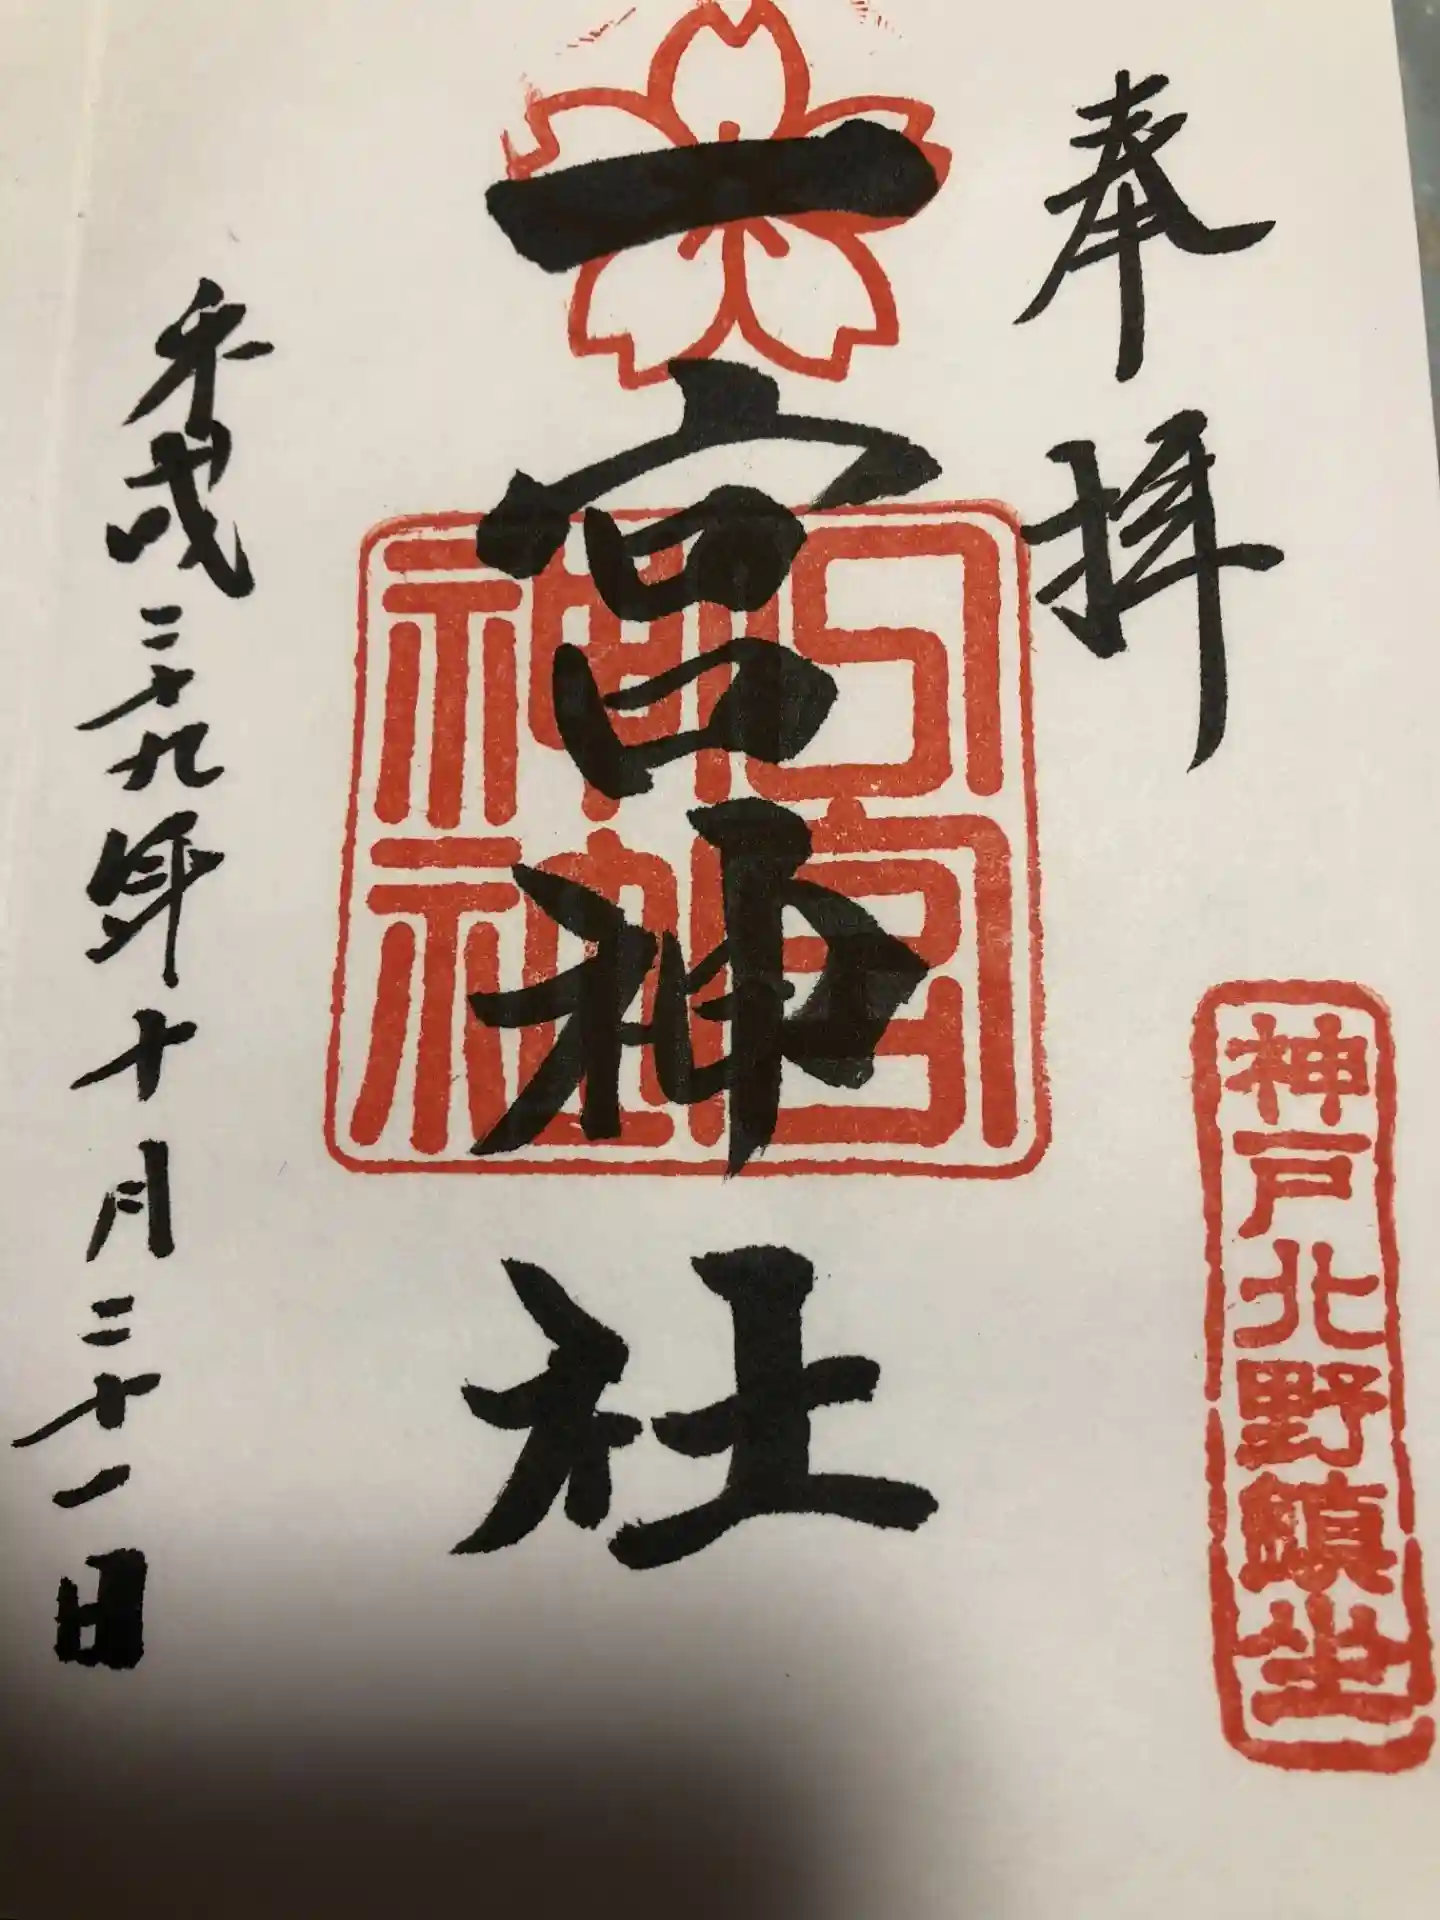 奉拝
神戸北野鎮坐
一宮神社
平成二十九年十月二十一日